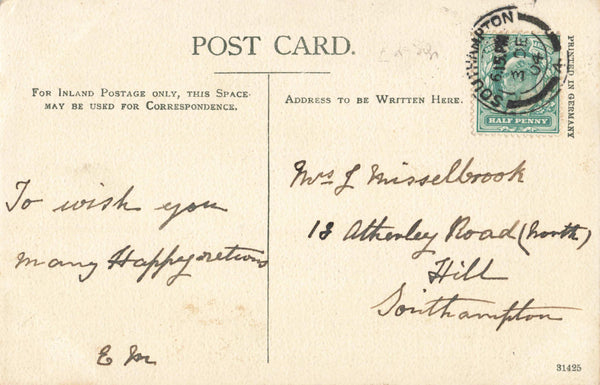 POST CARD.
FOR INLAND POSTAGE ONLY, THIS SPACE
MAY BE USED FOR CORRESPONDENCE.
ADDRESS TO BE WRITTEN HERE.
SOUTHAMPTON
6.15 PM
DE
04
HALF PENNY
PRINTED IN GERMANY
To wish you
many Happy returns
E M
Mrs J Misselbrook
13 Atherley Road (north)
Hill
Southampton
31425